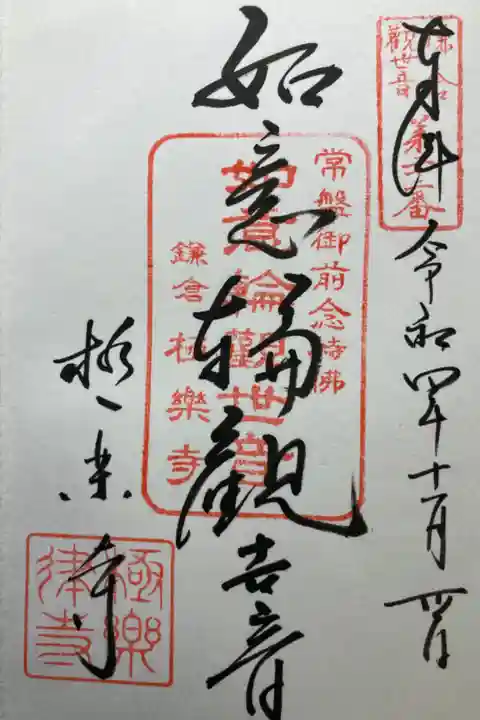 鎌倉
觀世音
奉拝
令和四年十一月
常盤御前念持佛
如意輪觀世音
鎌倉 極樂寺
如意輪觀世音
極楽寺
極樂
律寺